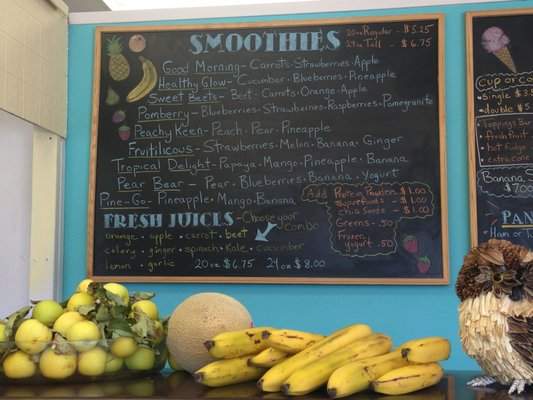 SMOOTHIES
20oz Regular - $5.25
24oz Tall - $6.75
Good Morning - Carrots · Strawberries · Apple
Healthy Glow - Cucumber · Blueberries · Pineapple
Sweet Beets - Beet · Carrots · Orange · Apple
Pomberry - Blueberries · Strawberries · Raspberries · Pomegranite
Peachy Keen - Peach · Pear · Pineapple
Fruitilicous - Strawberries · Melon · Banana · Ginger
Tropical Delight - Papaya · Mango · Pineapple · Banana
Pear Bear - Pear · Blueberries · Banana · Yogurt
Pine-Go - Pineapple · Mango · Banana
Add Protein Powder - $1.00
Superfoods - $1.00
chia Seeds - $1.00
Greens - .50
Frozen
yogurt .50
FRESH JUICES - Choose your
Combo
orange · apple · carrot · beet
celery · ginger · spinach · Kale · cucumber
lemon · garlic 20oz $6.75 24oz $8.00
CUP or Co
Single $
double $5
Toppings Bar
fresh fruit
hot fudge
extra cone
Banana S
$7.00
PAN
Ham or Tu